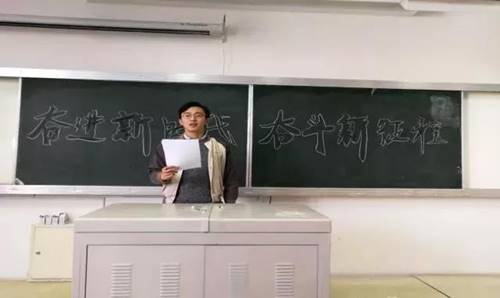 奋进新时代 奋斗新征程